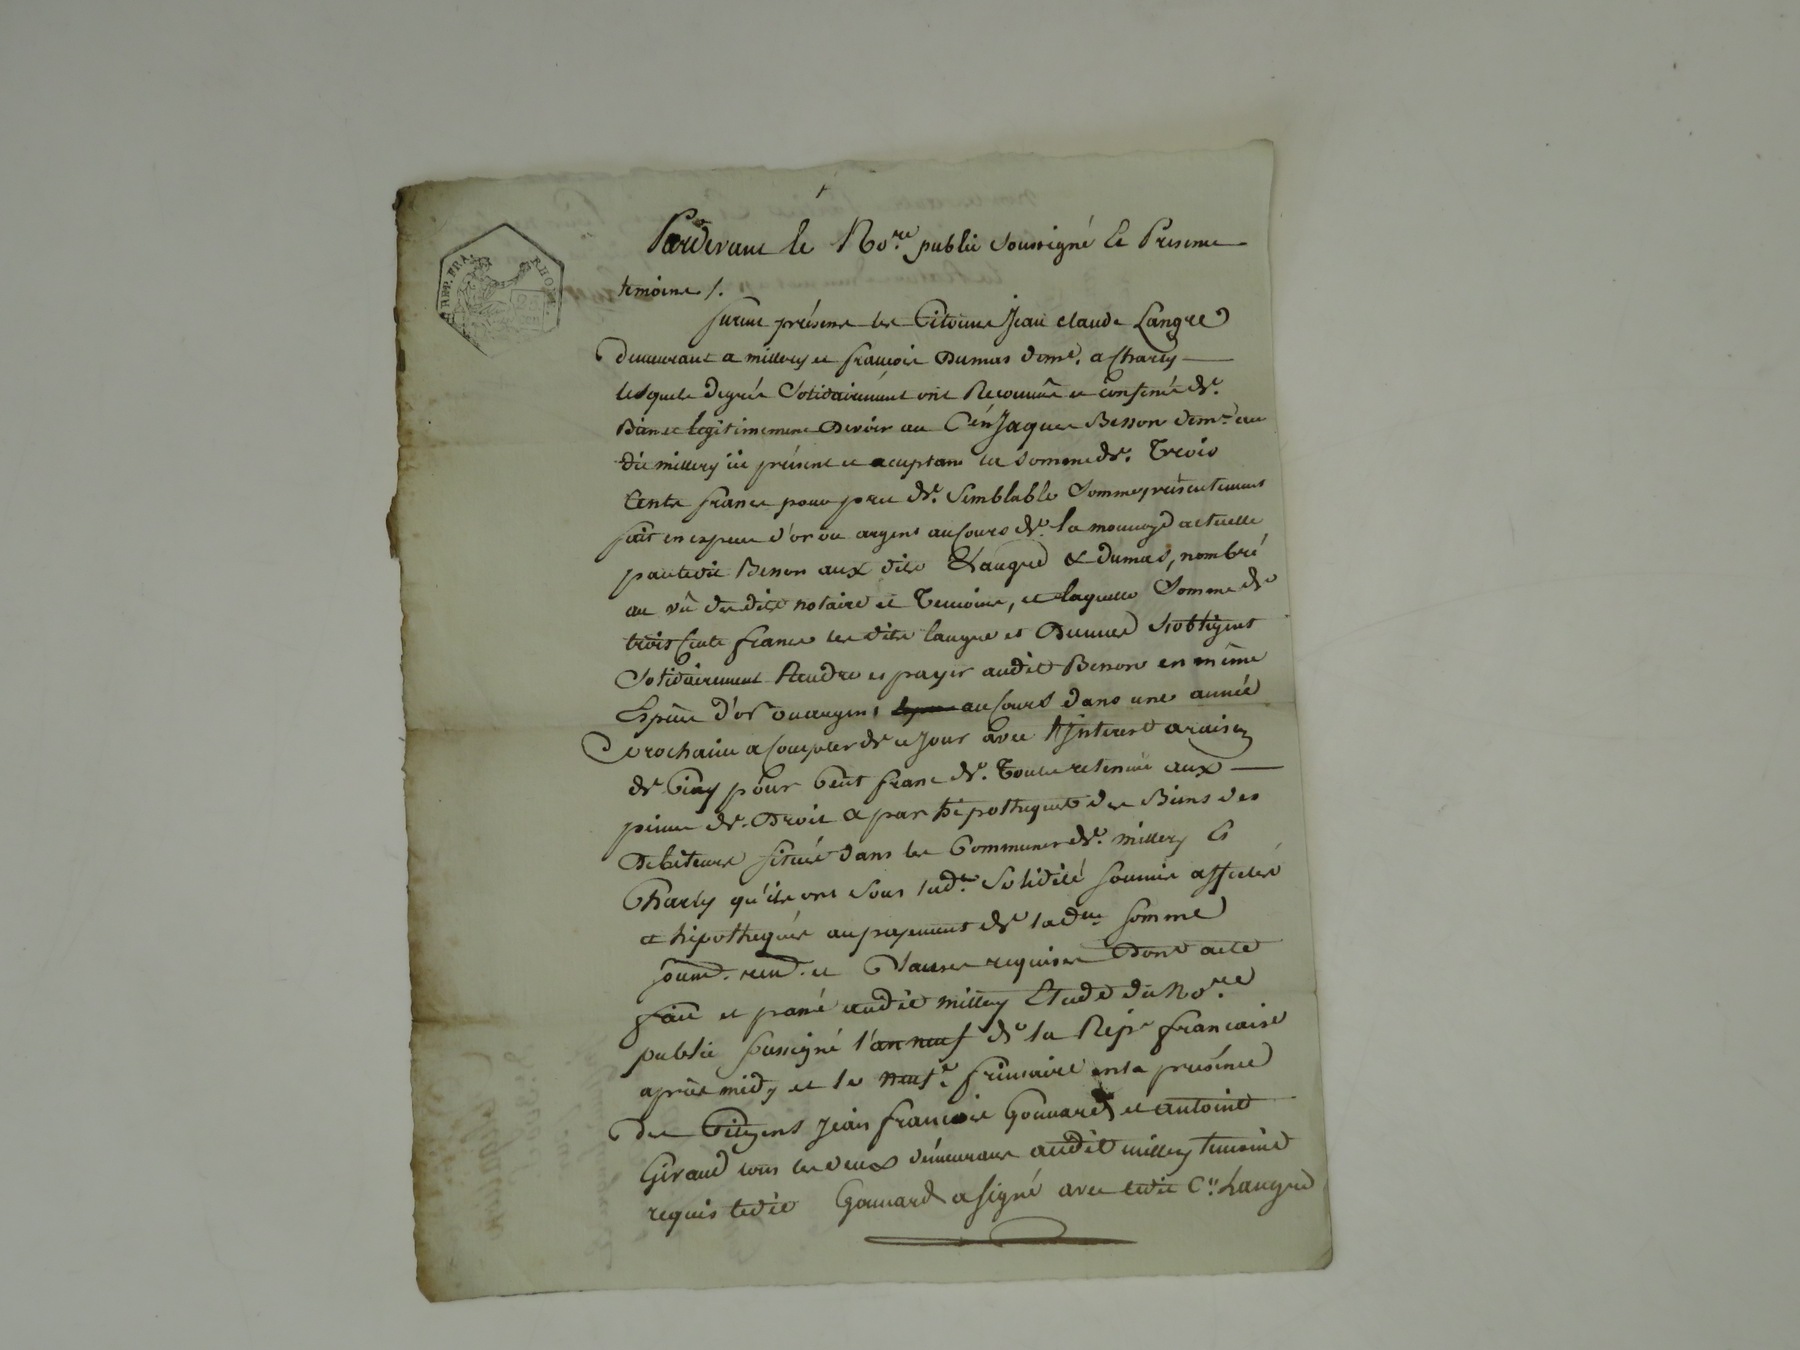 REP. FRA. RHONE
25 CEN
Pardevant le No.re public soussigné Et Presens
temoins /.
furent présens les Citoiens Jean claude Langre
demeurant a millery et françois Dumas dem.t a Charly
lesquels degrés Solidairement ont Reconnu et confessé de
Bien et legitimement Devoir au C.en Jaques Besson dem.t au
dit millery ici présent et aceptant la somme de Trois
Cents francs pour pret de Semblable Somme présentement
fait en espece d'or ou argent au Cours de la monnoye actuelle
par ledit Besson aux dits Langre & dumas, nombré
au vû des dits notaire et Temoins, et laquelle Somme de
trois Cents francs les dits langre et Dumas s'obligent
Solidairement Rendre et payer audit Besson en même
Espèce d'or ou argent au Cours dans une année
prochaine a Compter de ce Jour avec l'Interest a raison
de Cinq pour Cent franc de Toute retenue aux
peines de Droit & par hipotheque des Biens des
Debiteurs situés dans les Communes de millery Et
Charly qu'ils ont sous lad.te Solidité soumis affectés
et hipothequés au payement de lad.te somme
soum. ren. et Clauses requises Dont acte
fait et passé audit millery Etude du No.re
public soussigné l'an neuf de la Rep.e francaise
après midy et le neuf.e frimaire en la présence
des Citoyens Jean françois Gonnard et antoine
Giraud tous les deux demeurans audit millery temoins
requis ledit Gonnard a signé avec ledit C.n Langre